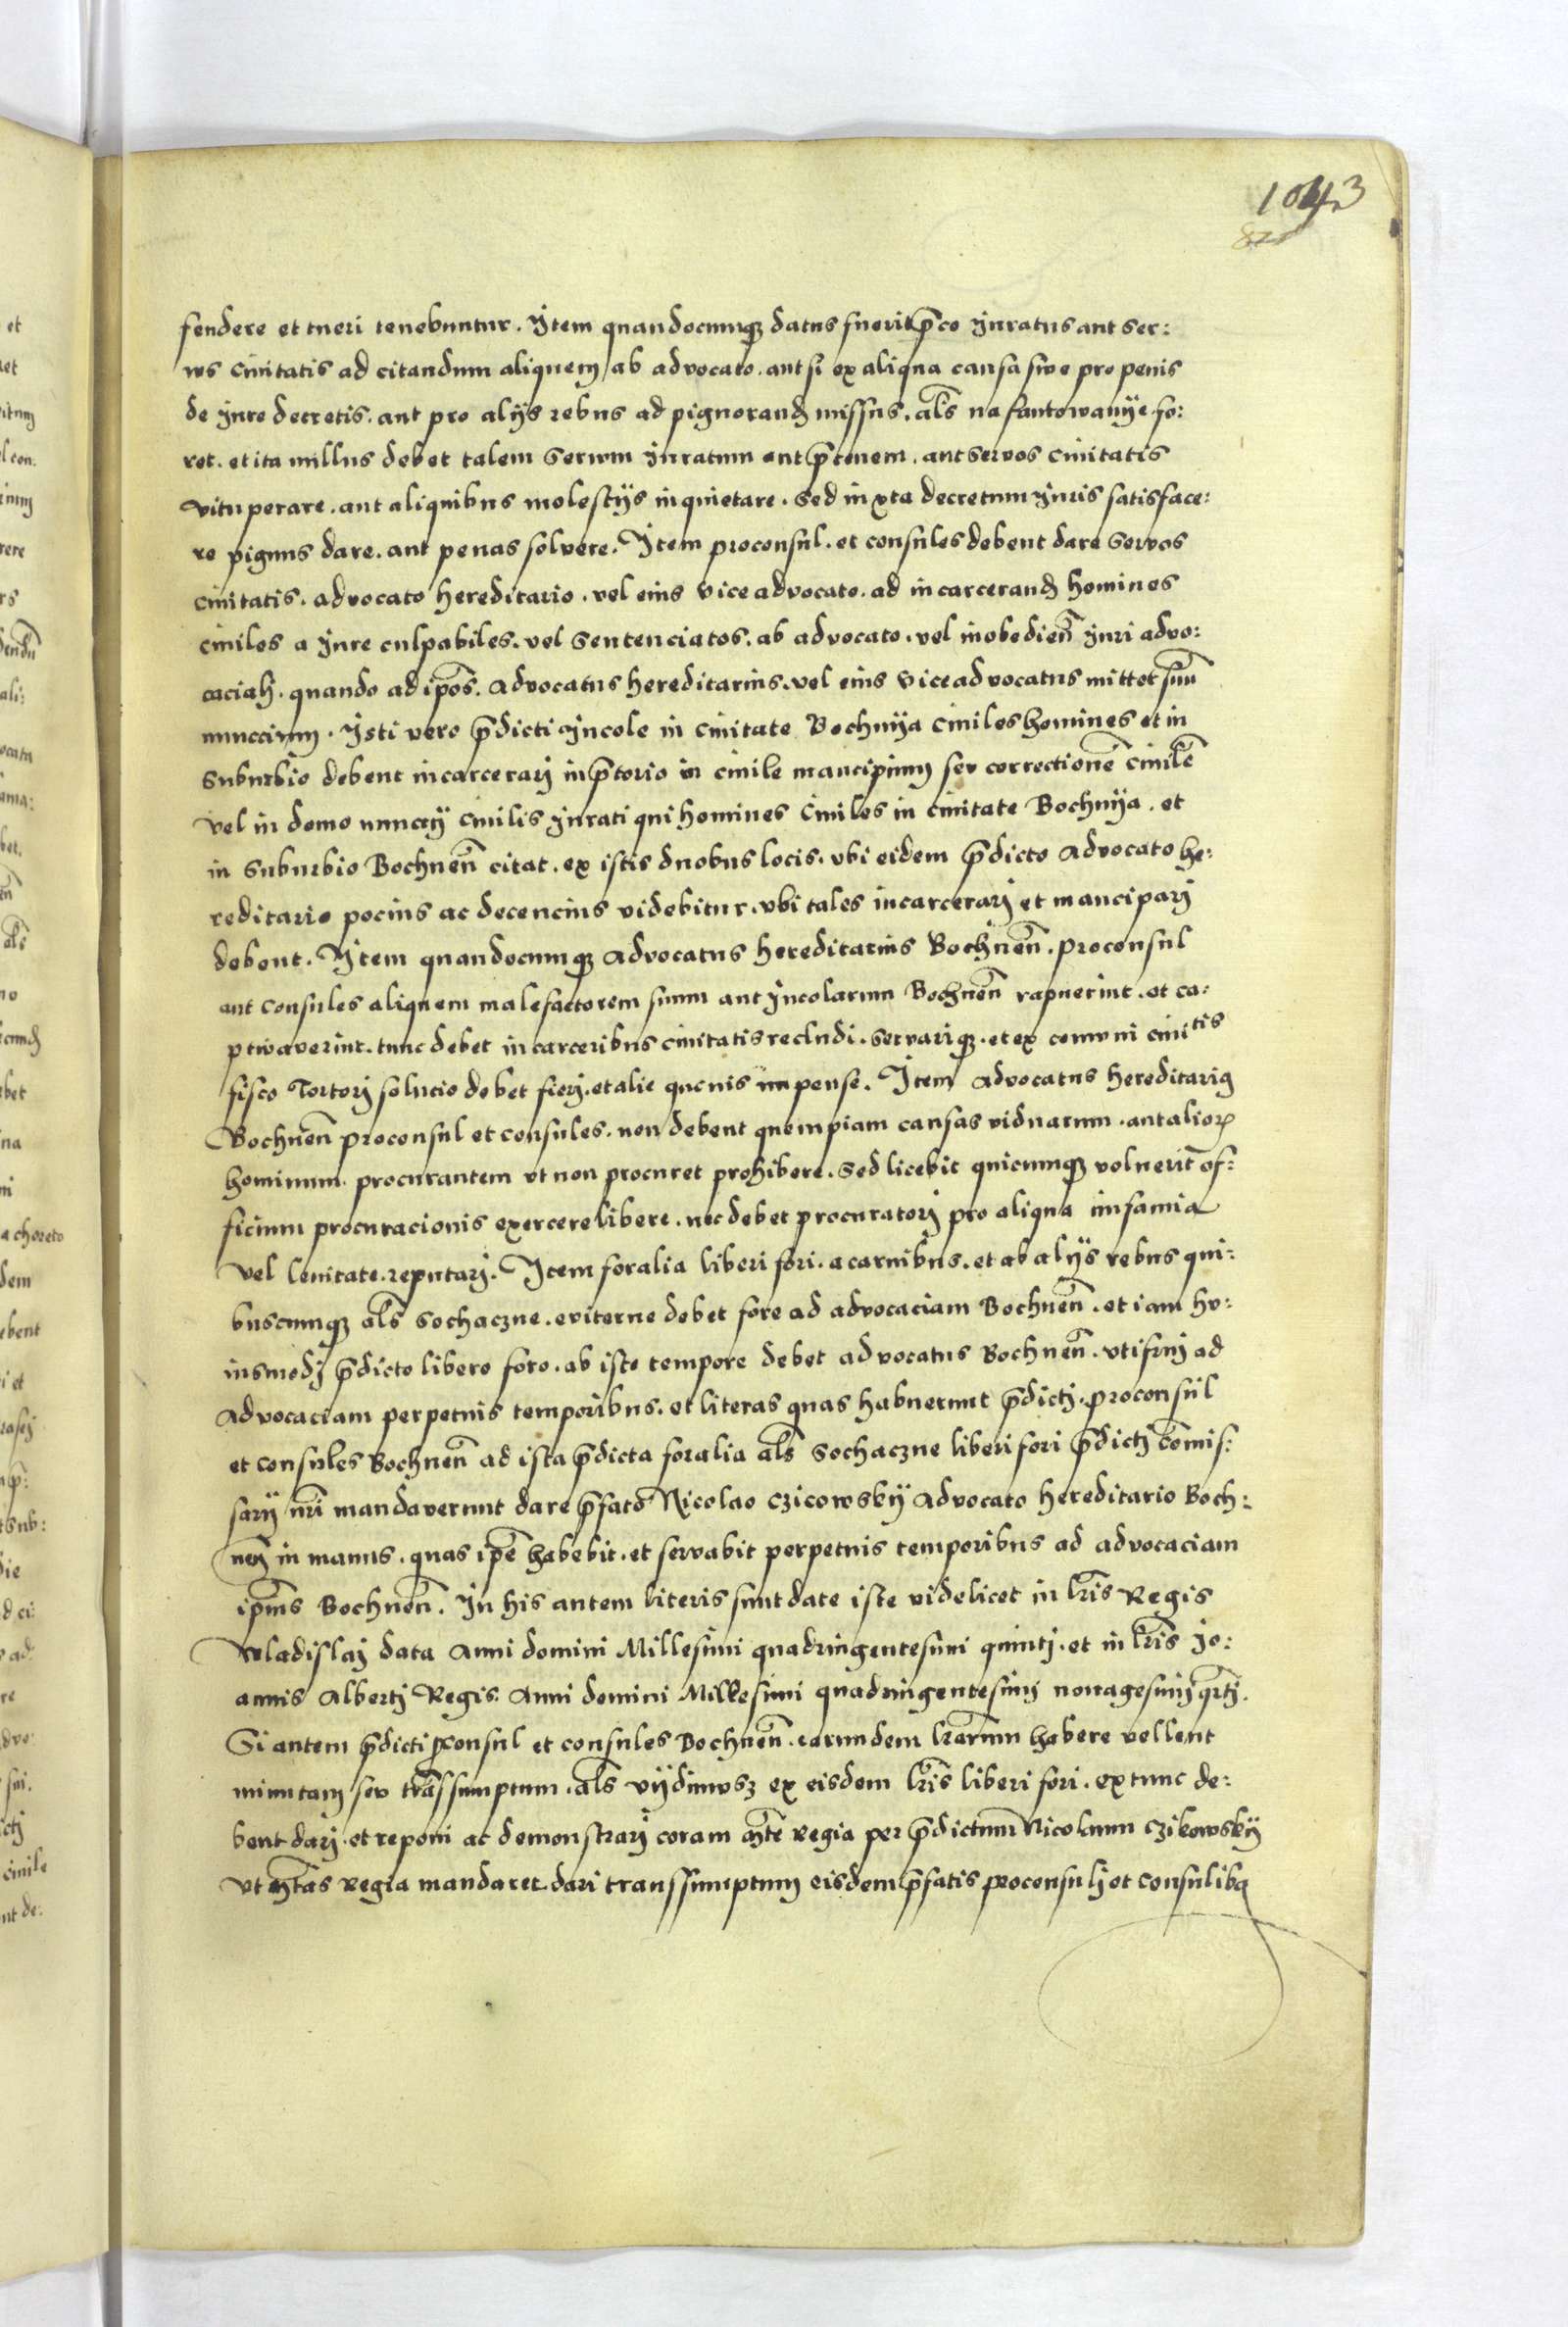 1043
fendere et tueri tenebuntur. Item quandocumq₃ datus fuerit p̄co Iuratus aut ser:
vus civitatis ad citandum aliquem ab advocato. aut si ex aliqua causa siue pro penis
de Iure decretis. aut pro alÿs rebus ad pignorand missus. al̄s na fantowanÿe fo:
ret. et ita nullus debet talem servum Iuratum aut p̄conem. aut servos civitatis
vituperare. aut aliquibus molestÿs inquietare. Sed iuxta decretum Iuris satisface:
re pignus dare. aut penas solvere. Item proconsul. et consules debent dare servos
civitatis. advocato hereditario. vel eius viceadvocato. ad incarcerand homines
civiles a Iure culpabiles. vel sentenciatos. ab advocato. vel inobedien̄ Iuri advo:
caciali. quando ad ip̄os. Advocatus hereditarius. vel eius viceadvocatus mittet suū
nunccium. Isti vero p̄dicti Incole in civitate Bochnÿa civiles homines et in
Suburbio debent incarcerarj in p̄torio in civile mancipium seu correctionē civilē
vel in domo nunccÿ civilis Iurati qui homines Civiles in civitate Bochnÿa. et
in Suburbio Bochnen̄ citat. ex istis duobus locis. vbi eidem p̄dicto Advocato he:
reditario pocius ac decencius videbitur. vbi tales incarcerarj et manciparj
debent. Item quandocumq₃ Advocatus hereditarius Bochnen̄. proconsul
aut consules aliquem malefactorem suum aut Incolarum Bochnen̄ rapuerint. et ca:
ptivaverint. tunc debet in carceribus civitatis recludi. servariq₃. et ex comuni civitis
fisco Tortorj solucio debet fierj. et alie quevis impense. Item Advocatus hereditarig
Bochnen̄ proconsul et consules. non debent quempiam causas viduarum. aut alioꝝ
hominum procurantem vt non procuret prohibere. Sed licebit quicumq₃ voluerit of:
ficium procuracionis exercere libere. nec debet procuratorj pro aliqua infamia
vel levitate. reputarj. Item foralia liberi fori. a carnibus. et ab alÿs rebus qui:
buscumq₃ al̄s Sochaczne. eviterne debet fore ad advocaciam Bochnen̄. et iam hu:
iusmodj p̄dicto libero foro. ab isto tempore debet advocatus Bochnen̄. vti frui ad
Advocaciam perpetuis temporibus. et literas quas habuerunt p̄dictj. proconsul
et consules Bochnen̄ ad ista p̄dicta foralia al̄s Sochaczne liberi fori p̄dictj com̄is:
sarÿ nr̄i mandaverunt dare p̄fato Nicolao Czicowskÿ Advocato hereditario Boch:
nen̄ in manus. quas ip̄e habebit. et servabit perpetuis temporibus ad advocaciam
ip̄ius Bochnen̄. In his autem literis sunt date iste videlicet in l̄ris Regis
Wladislaj data Anni domini Millesimi quadringentesimi quintj. et in l̄ris Jo:
annis Albertj Regis. Anni domini Millesimi quadringentesimj nonagesimj qr̄tj.
Si autem p̄dicti proconsul et consules Bochnen̄. earundem l̄rarum habere vellent
minutam seu trāssumptum. al̄s vÿdimvsz ex eisdem l̄ris liberi fori. extunc de:
bent darj. et reponi ac demonstrarj coram M̄te regia per p̄dictum Nicolaum Czikowskÿ
vt M̄tas regia mandaret dari transsumptum eisdem p̄fatis proconsulj et consulibꝯ